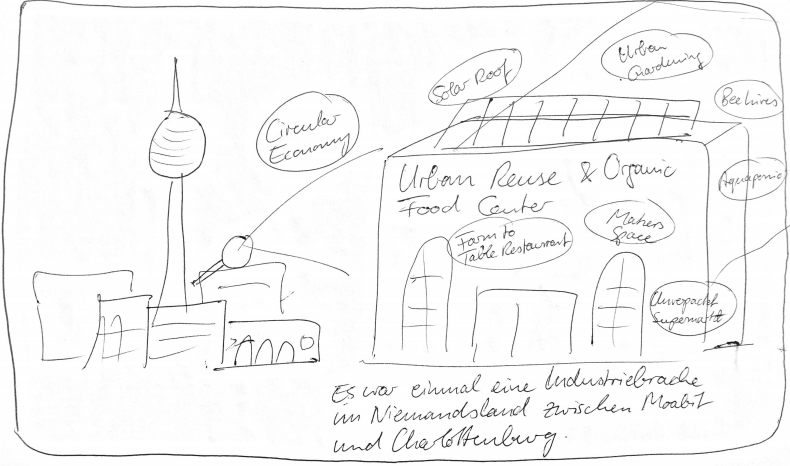 Solar Roof
Urban
Gardening
Beehives
Circular
Economy
Urban Reuse & Organic
Food Center
Aquaponic
Farm to
Table Restaurant
Makers
Space
Unverpackt
Supermarkt
Es war einmal eine Industriebrache
im Niemandsland zwischen Moabit
und Charlottenburg.